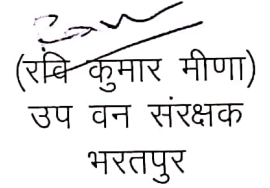 (रवि कुमार मीणा)
उप वन संरक्षक
भरतपुर